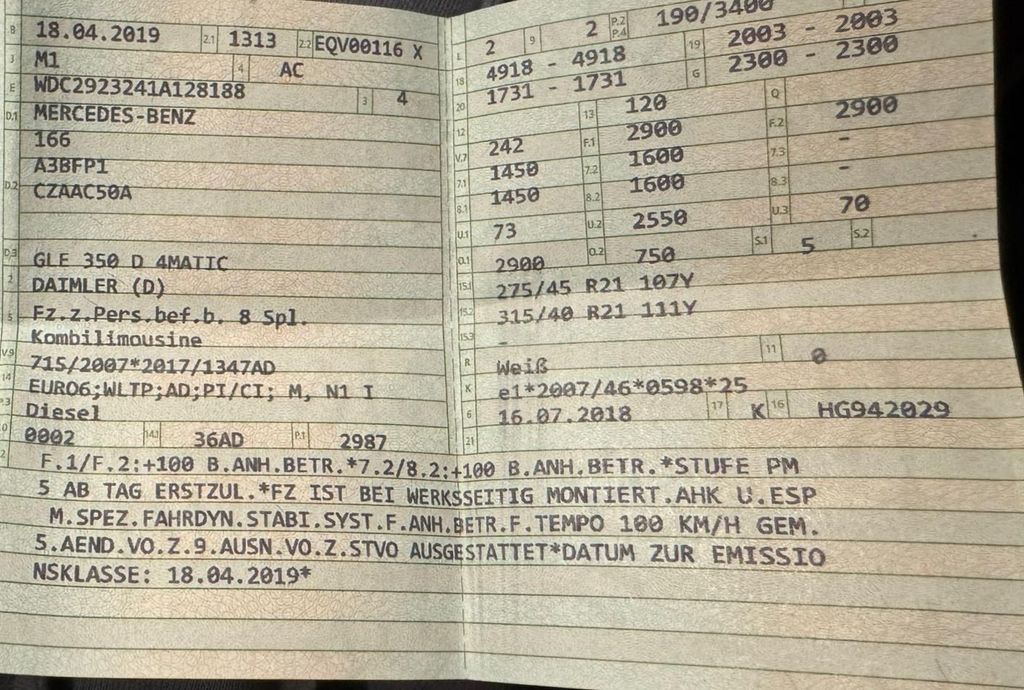 B 18.04.2019 2.1 1313 2.2 EQV00116 X
J M1 4 AC
E WDC2923241A128188 3 4
D.1 MERCEDES-BENZ
166
A3BFP1
D.2 CZAAC50A
D.3 GLE 350 D 4MATIC
2 DAIMLER (D)
5 Fz.z.Pers.bef.b. 8 Spl.
Kombilimousine
V.9 715/2007*2017/1347AD
14 EURO6;WLTP;AD;PI/CI; M, N1 I
P.3 Diesel
10 0002 14.1 36AD P.1 2987
L 2 9 2 P.2 P.4 190/3400
18 4918 - 4918 19 2003 - 2003
20 1731 - 1731 G 2300 - 2300
12 13 120 Q
V.7 242 F.1 2900 F.2 2900
7.1 1450 7.2 1600 7.3 -
8.1 1450 8.2 1600 8.3 -
U.1 73 U.2 2550 U.3 70
O.1 2900 O.2 750 S.1 5 S.2
15.1 275/45 R21 107Y
15.2 315/40 R21 111Y
15.3 -
R Weiß 11 0
K e1*2007/46*0598*25
6 16.07.2018 17 K 16 HG942029
21
F.1/F.2:+100 B.ANH.BETR.*7.2/8.2:+100 B.ANH.BETR.*STUFE PM
5 AB TAG ERSTZUL.*FZ IST BEI WERKSSEITIG MONTIERT.AHK U.ESP
M.SPEZ.FAHRDYN.STABI.SYST.F.ANH.BETR.F.TEMPO 100 KM/H GEM.
5.AEND.VO.Z.9.AUSN.VO.Z.STVO AUSGESTATTET*DATUM ZUR EMISSIO
NSKLASSE: 18.04.2019*